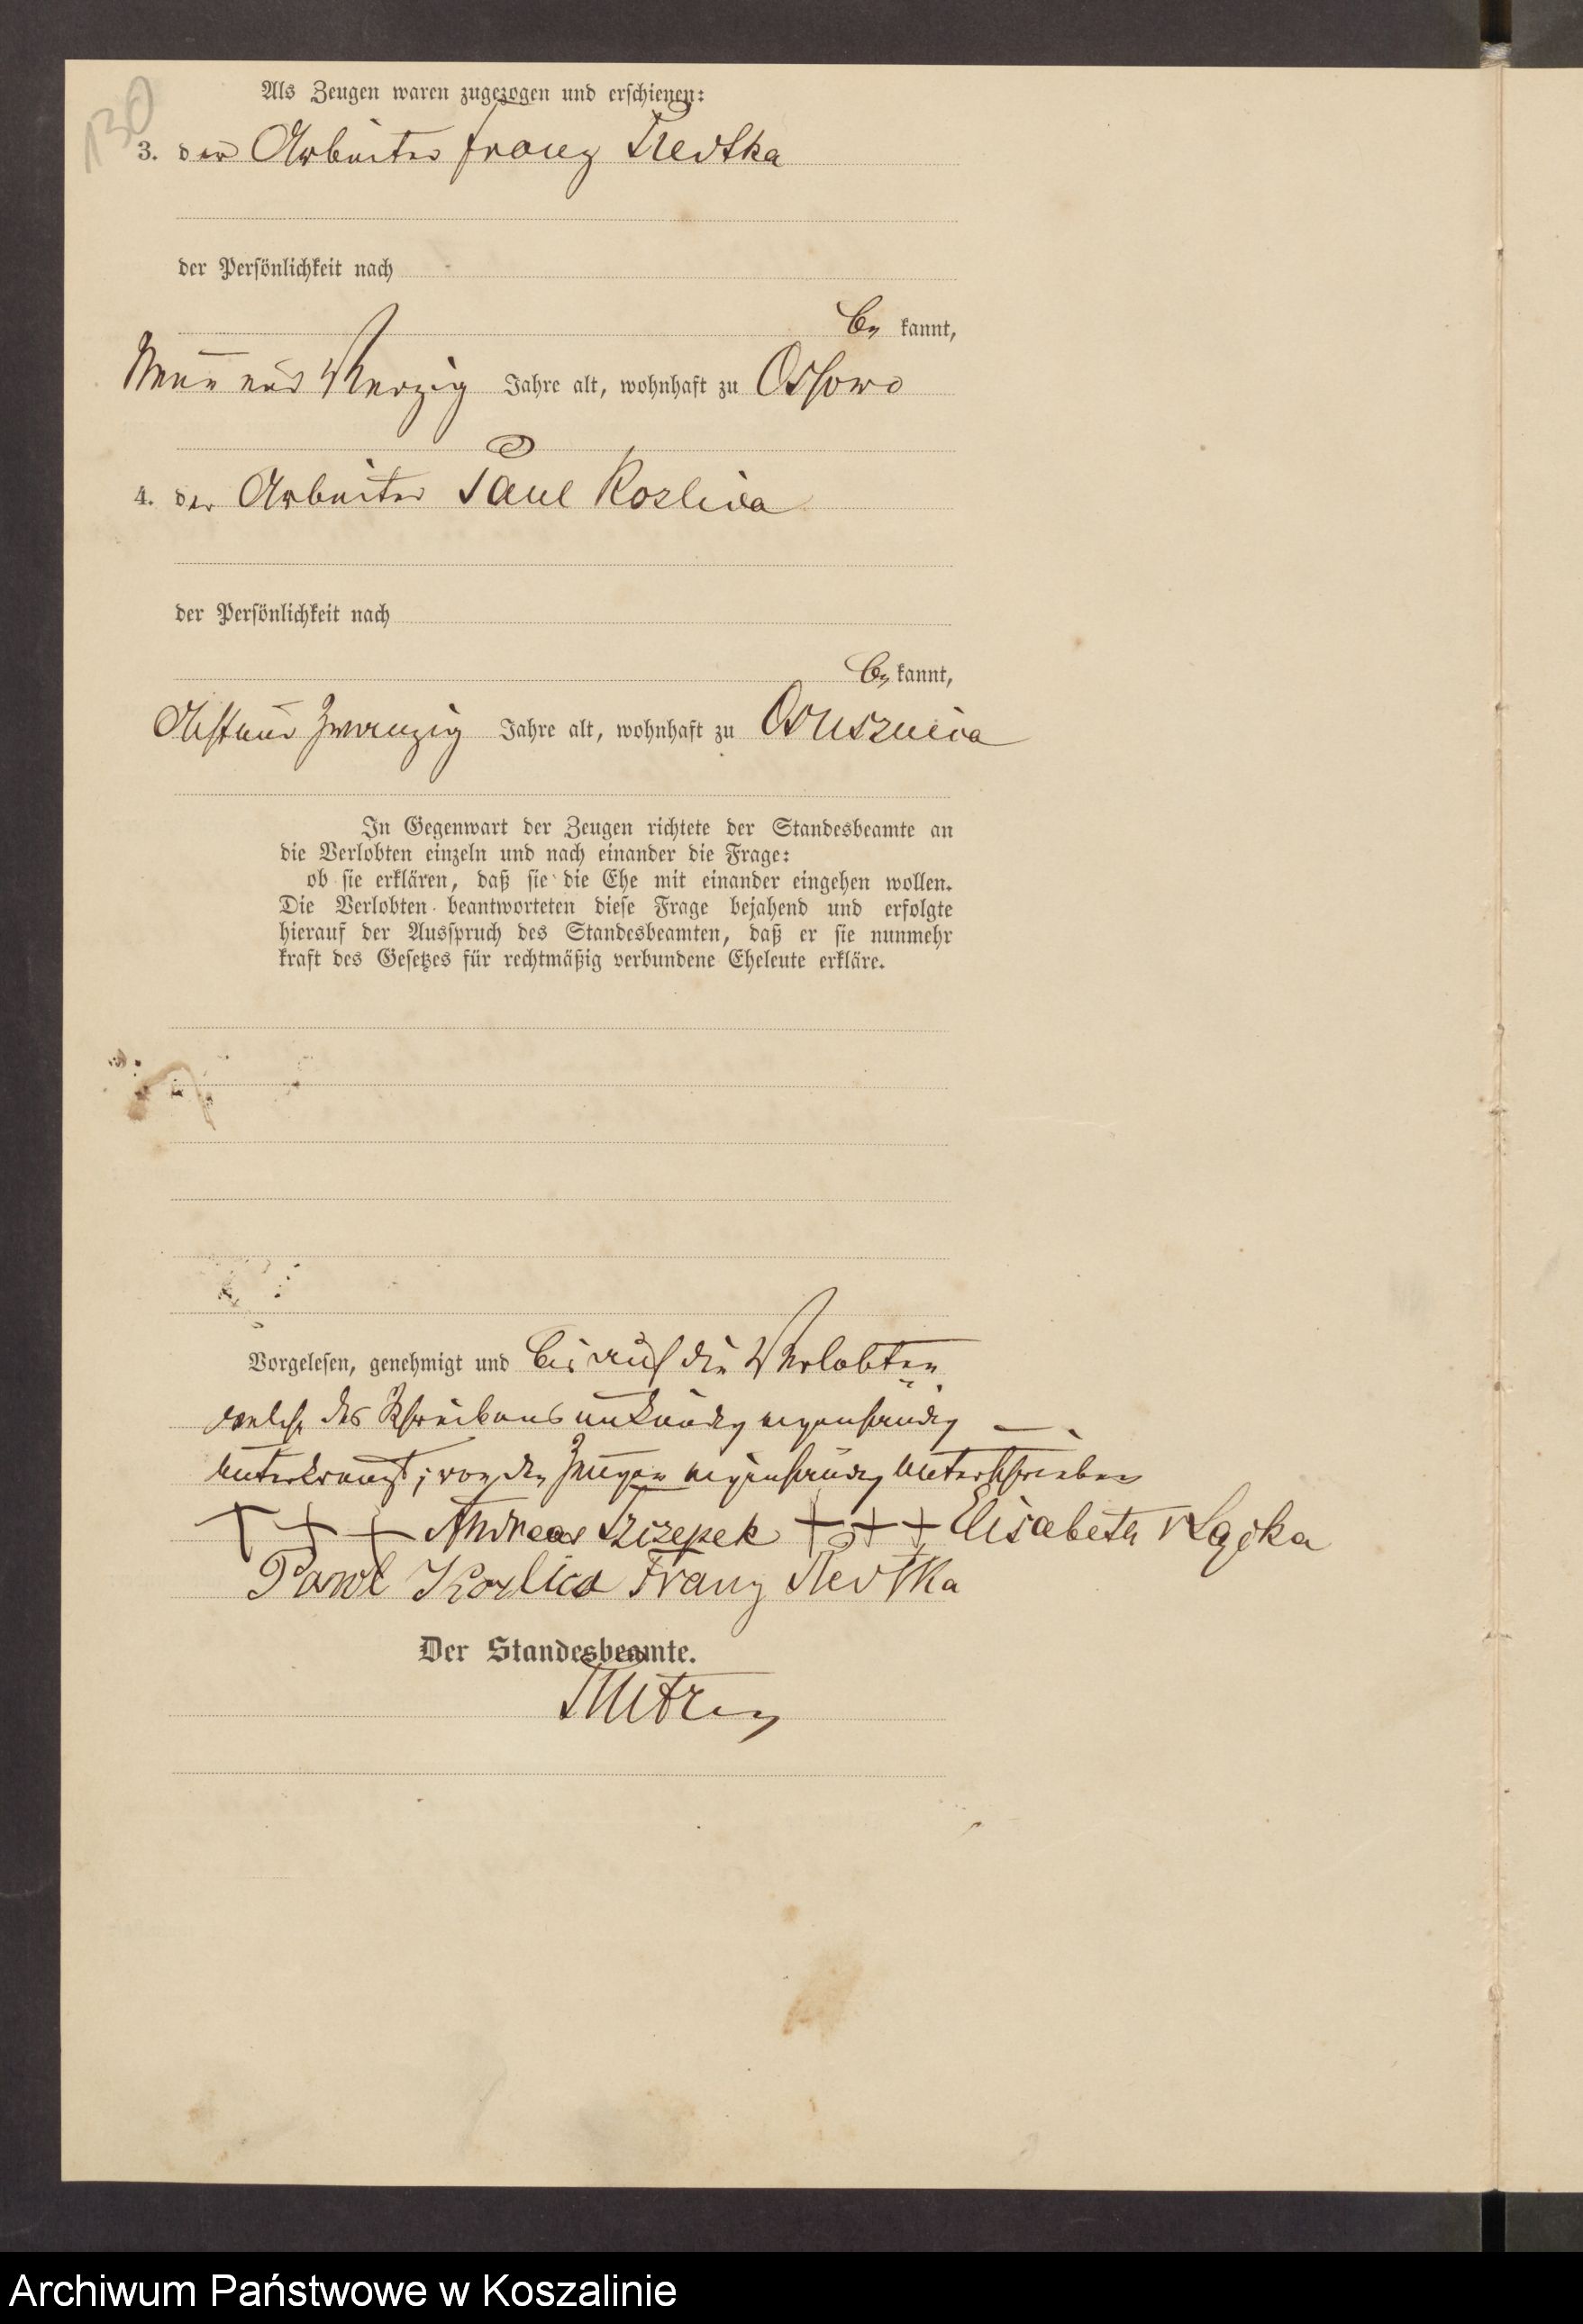 130
Als Zeugen waren zugezogen und erschienen:
3. der Arbeiter Franz
der Persönlichkeit nach
be kannt,
Neun und Vierzig Jahre alt, wohnhaft zu Ossowo
4. der Arbeiter Paul Kozlica
der Persönlichkeit nach
be kannt,
Acht und zwanzig Jahre alt, wohnhaft zu Osusznica
In Gegenwart der Zeugen richtete der Standesbeamte an
die Verlobten einzeln und nach einander die Frage:
ob sie erklären, daß sie die Ehe mit einander eingehen wollen.
Die Verlobten beantworteten diese Frage bejahend und erfolgte
hierauf der Ausspruch des Standesbeamten, daß er sie nunmehr
kraft des Gesetzes für rechtmäßig verbundene Eheleute erkläre.
Vorgelesen, genehmigt und bis auf die Verlobten
welche des Schreibens unkundig eigenhändig
unterkreuzt, von den Zeugen eigenhändig unterschrieben
+ + + Andreas + + + Elisabeth
Pawl Kozlica Franz
Der Standesbeamte.
Archiwum Państwowe w Koszalinie